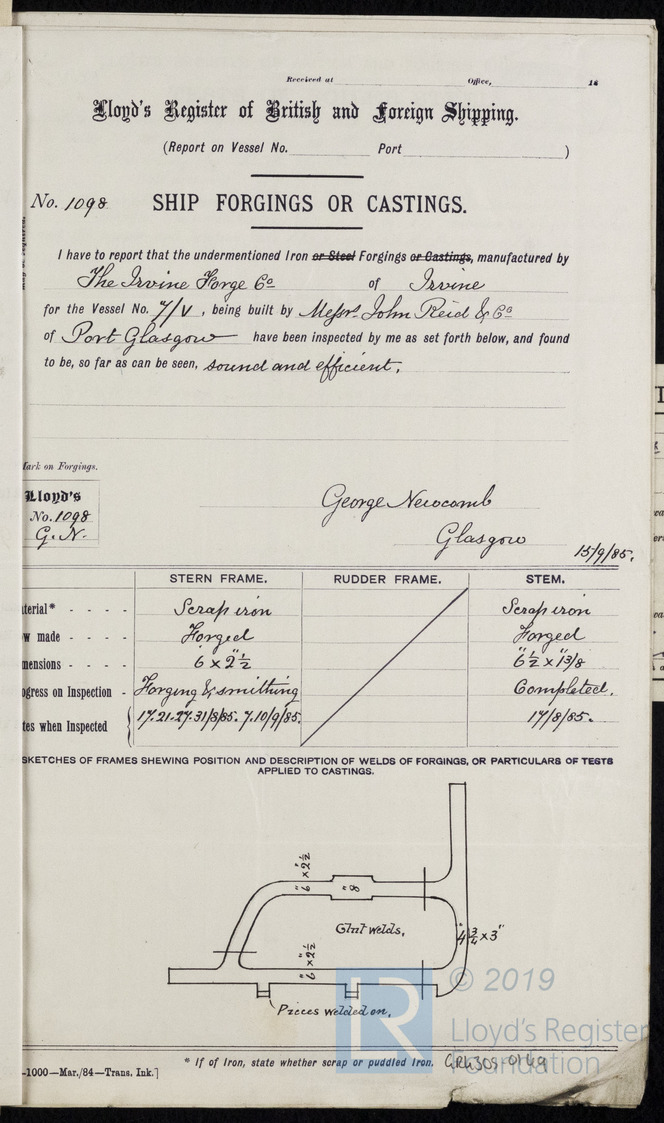 Received at Office, 18
Lloyd's Register of British and Foreign Shipping.
(Report on Vessel No. Port )
No. 1098 SHIP FORGINGS OR CASTINGS.
I have to report that the undermentioned Iron or Steel Forgings or Castings, manufactured by
The Irvine Forge Co of Irvine
for the Vessel No. 7/V, being built by Messrs. John Reid & Co
of Port Glasgow have been inspected by me as set forth below, and found
to be, so far as can be seen, sound and efficient.
Mark on Forgings.
Lloyd's
No. 1098
G.N.
George Newcomb
Glasgow
15/9/85.
STERN FRAME. RUDDER FRAME. STEM.
terial* - - - - Scrap iron Scrap iron
w made - - - - Forged Forged
mensions - - - - 6" x 2 1/2" 6 1/2" x 1 3/8"
ogress on Inspection - Forging & smithing Completed.
tes when Inspected 17.21.27.31/8/85. 7.10/9/85. 17/8/85.
SKETCHES OF FRAMES SHEWING POSITION AND DESCRIPTION OF WELDS OF FORGINGS, OR PARTICULARS OF TESTS
APPLIED TO CASTINGS.
6" x 2 1/2"
8"
Glut welds.
4 3/4" x 3"
6" x 2 1/2"
Pieces welded on.
© 2019
LR
Lloyd's Register
Foundation
* If of Iron, state whether scrap or puddled Iron.
-1000—Mar./84—Trans. Ink.]